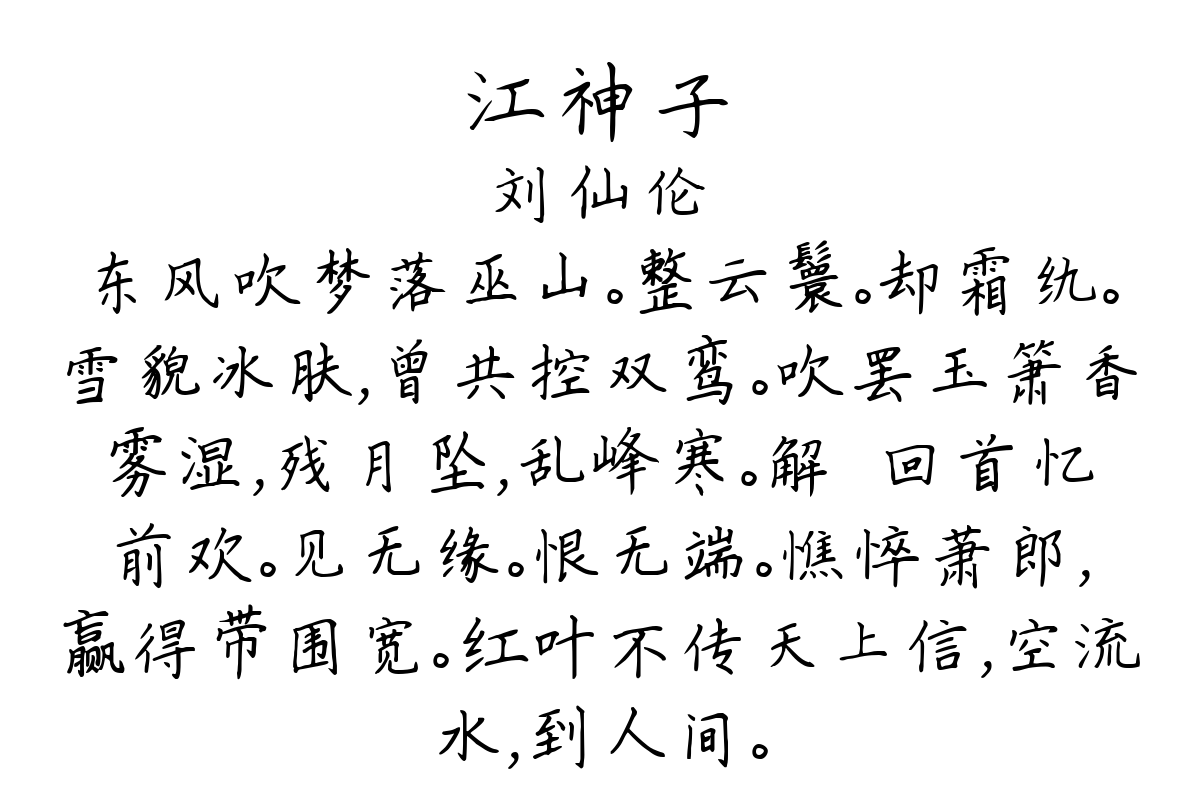 江神子
刘仙伦
东风吹梦落巫山。整云鬟。却霜纨。
雪貌冰肤,曾共控双鸾。吹罢玉箫香
雾湿,残月坠,乱峰寒。解 回首忆
前欢。见无缘。恨无端。憔悴萧郎,
赢得带围宽。红叶不传天上信,空流
水,到人间。